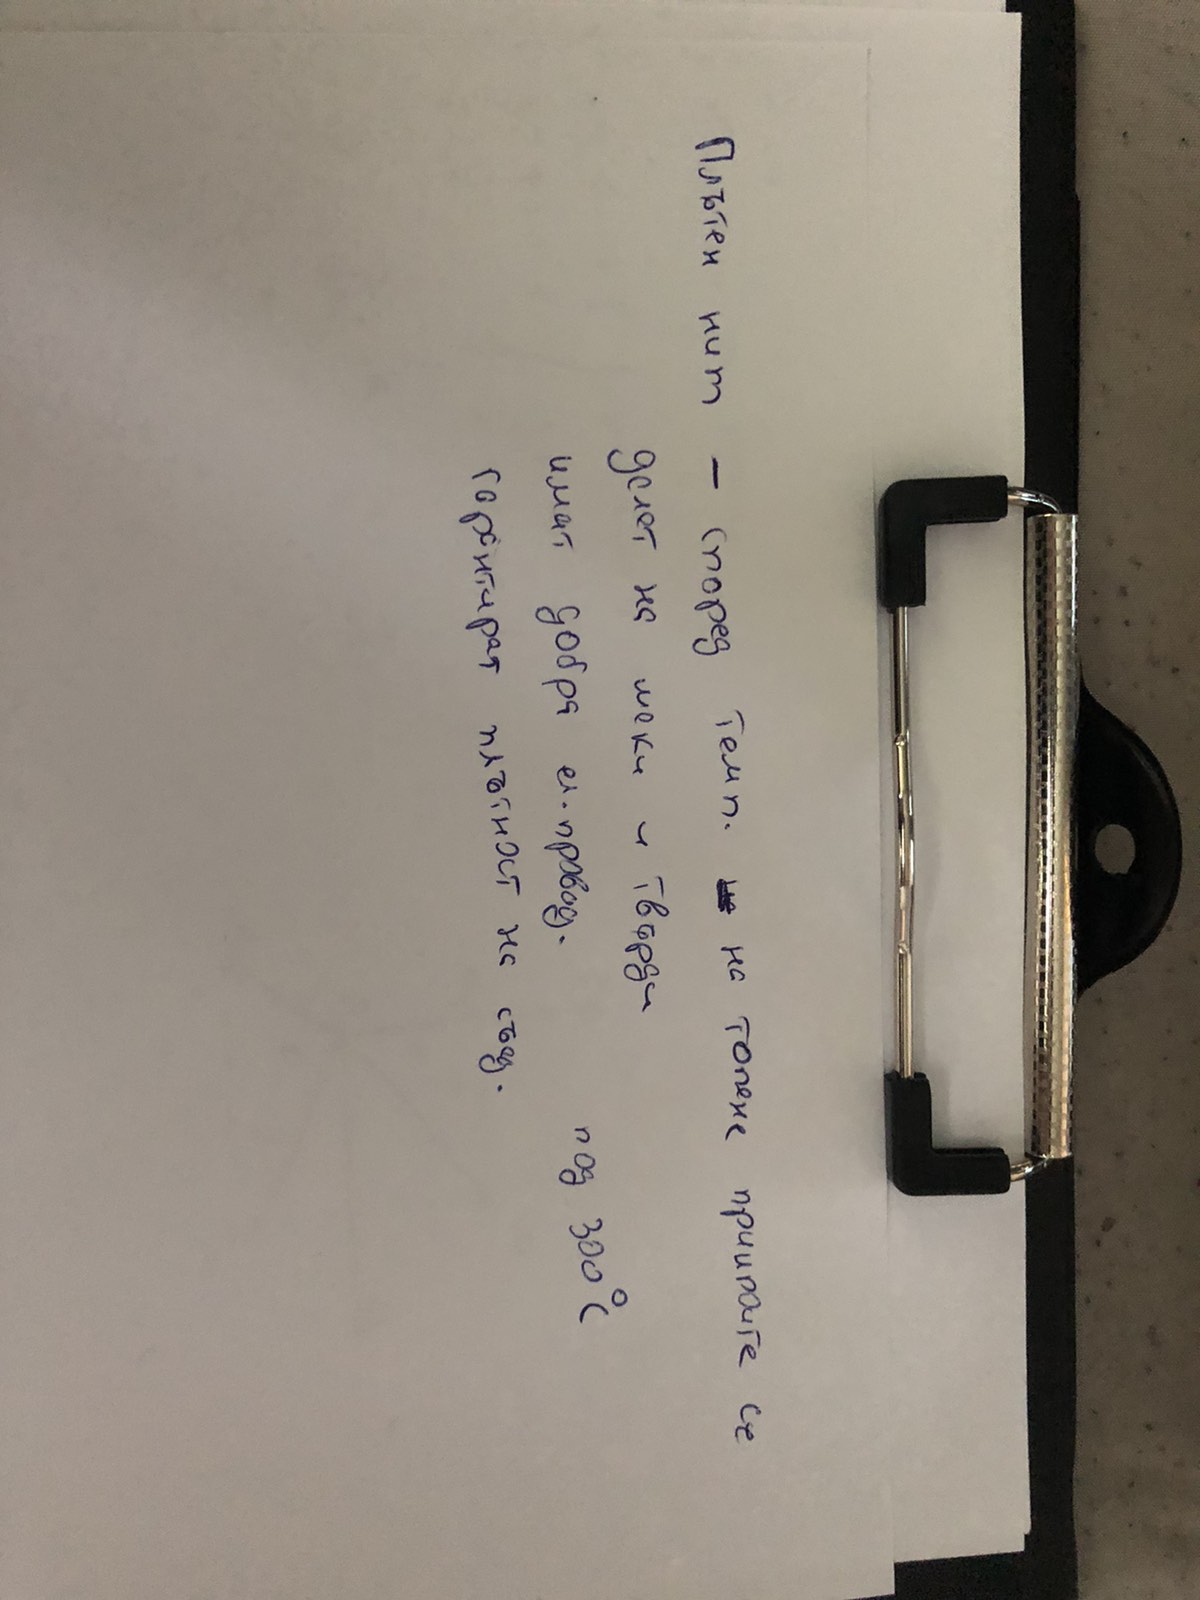 Плътен нит – според темп. на топене приптоите се
делят на меки и твърди
имат добра ел. провод. под 300°C
гарантират плътност на съед.